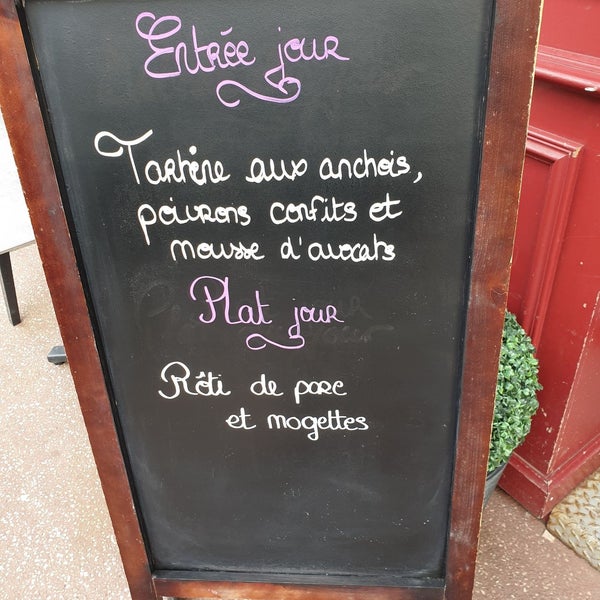 Entrée jour
Tartine aux anchois,
poivrons confits et
mousse d'avocats
Plat jour
Rôti de porc
et mogettes